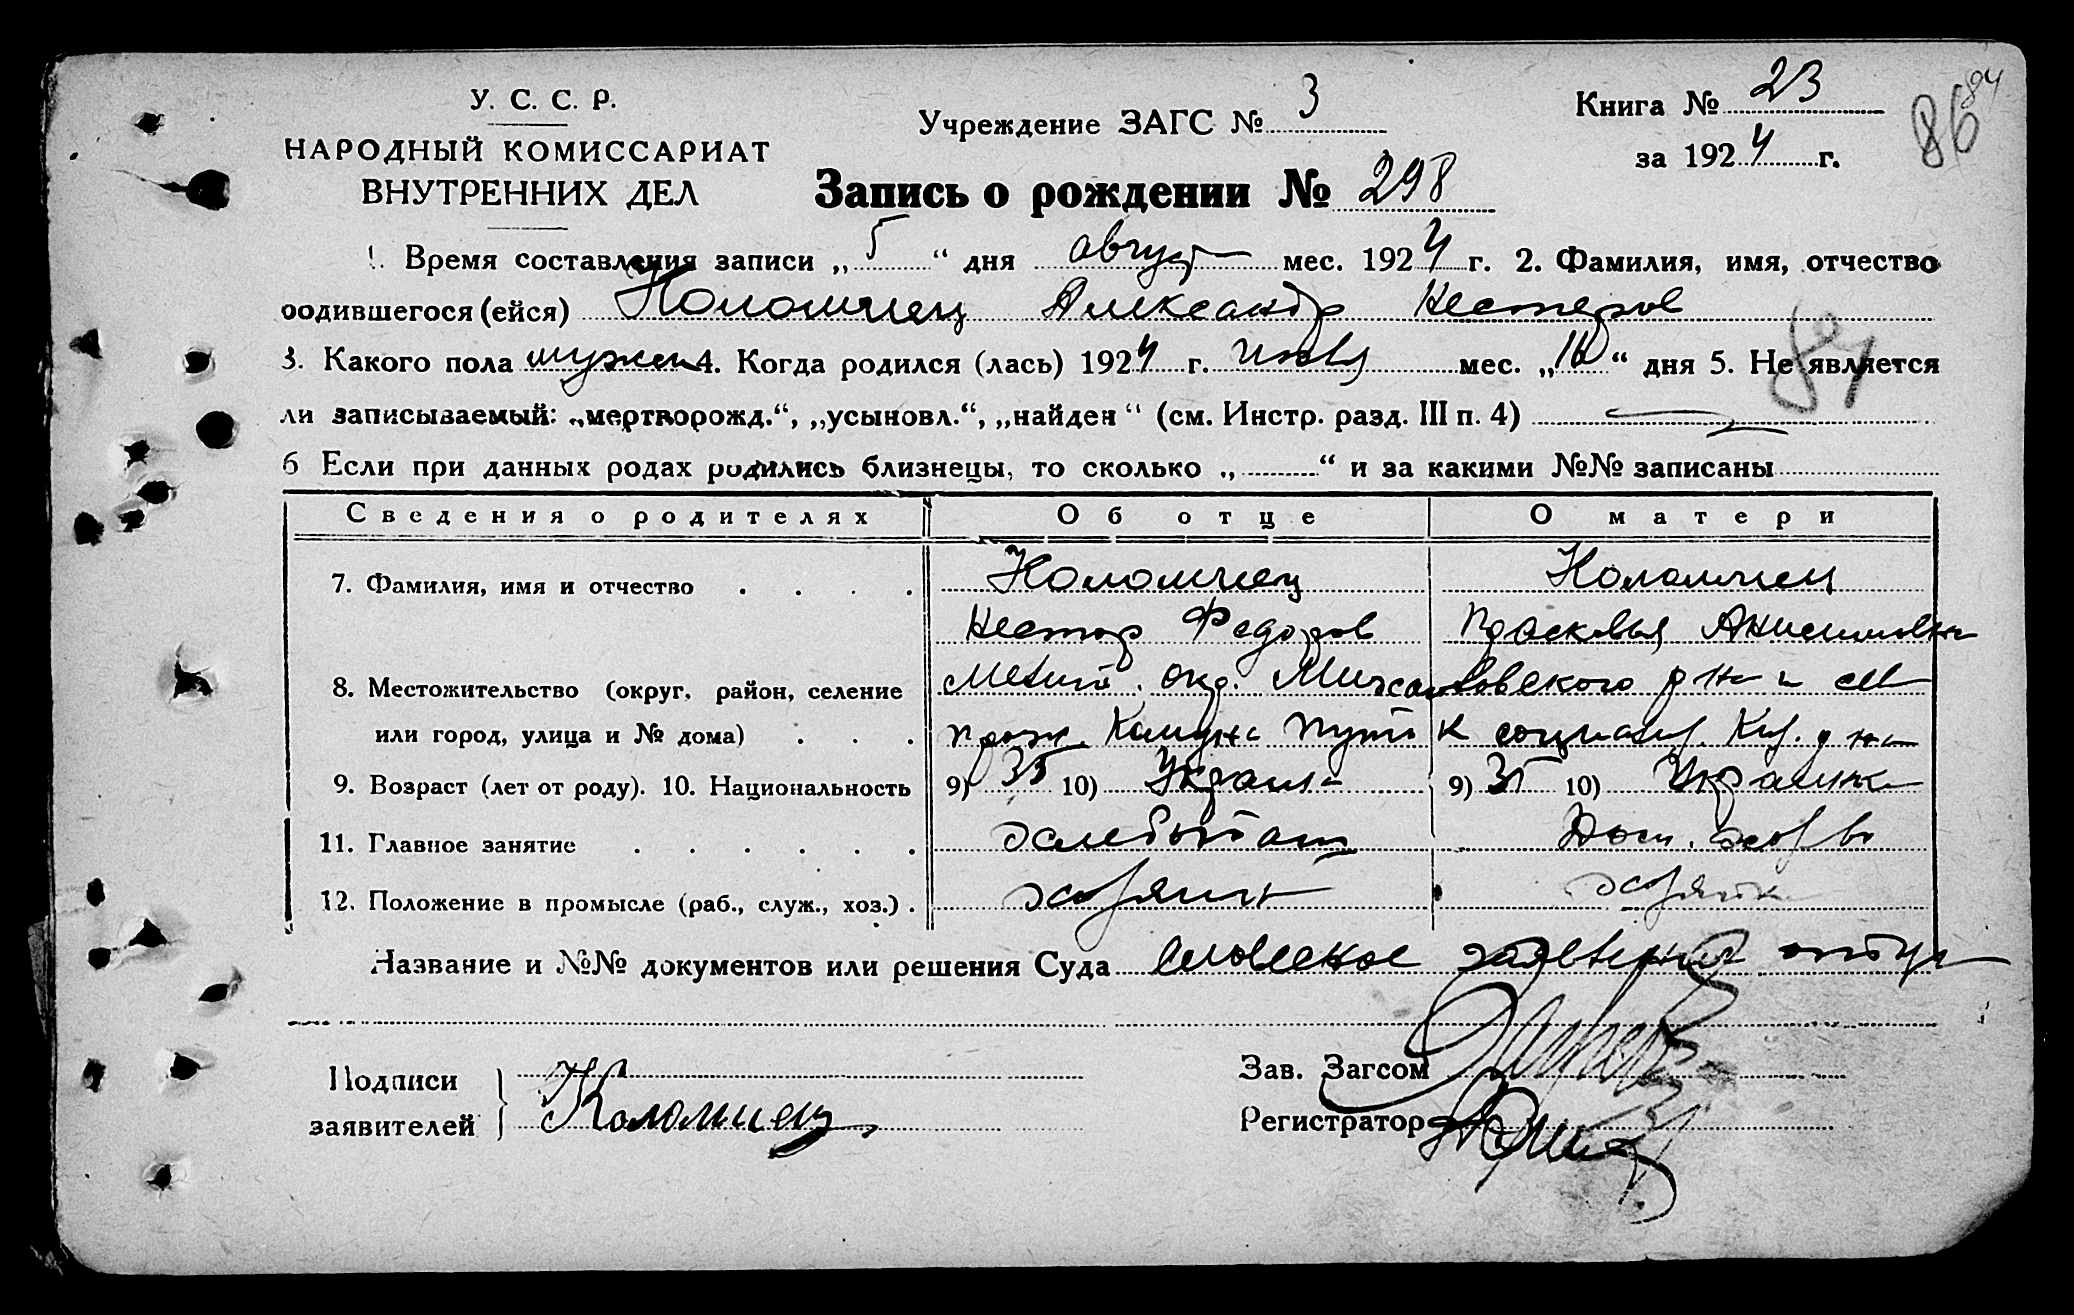 У. С. С. Р.
НАРОДНЫЙ КОМИССАРИАТ
ВНУТРЕННИХ ДЕЛ
Учреждение ЗАГС № 3
Книга № 23
за 1924 г.
84
86
Запись о рождении № 298
1. Время составления записи „5“ дня август мес. 1924 г. 2. Фамилия, имя, отчество
родившегося (ейся) Коломиец Александр Нестеров
3. Какого пола мужск 4. Когда родился (лась) 1924 г. мес. „16“ дня 5. Не является
ли записываемый: „мертворожд.“, „усыновл.“, „найден“ (см. Инстр. разд. III п. 4)
6 Если при данных родах родились близнецы, то сколько „ “ и за какими №№ записаны
Сведения о родителях Об отце О матери
7. Фамилия, имя и отчество Коломиец Коломиец
Нестор Федоров Прасковья Анисимовна
8. Местожительство (округ, район, селение окр. р на и
или город, улица и № дома) прож. Комуна Путь к социализ.
9. Возраст (лет от роду). 10. Национальность 9) 35 10) Украин 9) 35 10) Украинка
11. Главное занятие хлебопаш Дом. хоз во
12. Положение в промысле (раб., служ., хоз.) хозяин хозяйка
Название и №№ документов или решения Суда Словесное заявление отца
Подписи
заявителей
Коломиец
Зав. Загсом
Регистратор